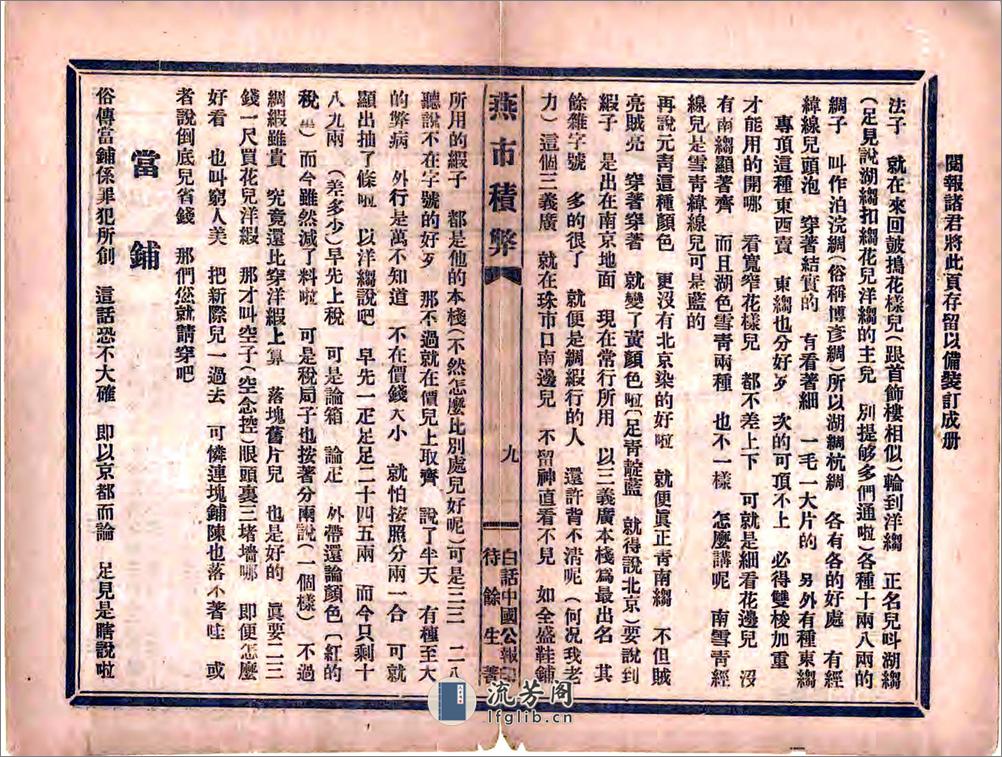 閱報諸君將此頁存留以備裝訂成册
法子　就在來回皷搗花樣兒（跟首飾樓相似）輪到洋縐　正名兒呌湖縐
（足見說湖縐扣縐花兒洋縐的主兒　別提够多們通啦）各種十兩八兩的
綢子　叫作泊浣綢（俗稱博彥綢）所以湖綢杭綢　各有各的好處　有經
緯線兒頭泡　穿著結實的　有看著細　一毛一大片的　另外有種東縐
專頂這種東西賣　東縐也分好歹　次的可頂不上　必得雙梭加重
才能用的開哪　看寬窄花樣兒　都不差上下　可就是細看花邊兒　沒
有南縐顯著齊　而且湖色雪靑兩種　也不一樣　怎麼講呢　南雪靑經
線兒是雪靑緯線兒可是藍的
再說元靑這種顏色　更沒有北京染的好啦　就便眞正靑南縐　不但賊
亮賊亮　穿著穿著　就變了黃顏色啦（足靑靛藍　就得說北京）要說到
緞子　是出在南京地面　現在常行所用　以三義廣本棧爲最出名　其
餘雜字號　多的很了　就便是綢緞行的人　還許背不清呢（何况我老
力）這個三義廣　就在珠市口南邊兒　不留神直看不見　如全盛鞋鋪
燕市積弊
九
白話中國公報
待餘生著
所用的緞子　都是他的本棧（不然怎麼比別處兒好呢）可是三三　二八
聽說不在字號的好歹　那不過就在價兒上取齊　說了半天　有種至大
的弊病　外行是萬不知道　不在價錢大小　就怕按照分兩一合　可就
顯出抽了條啦　以洋縐說吧　早先一疋足足二十四五兩　而今只剩十
八九兩　（差多少）早先上稅　可是論箱　論疋　外帶還論顏色（紅的
稅　）而今雖然減了料啦　可是稅局子也按著分兩說（一個樣）不過
綢緞雖貴　究竟還比穿洋緞上算　落塊舊片兒　也是好的　眞要二三
錢一尺買花兒洋緞　那才叫空子（空念控）眼頭裏三堵墻哪　即便怎麼
好看　也叫窮人美　把新際兒一過去　可憐連塊鋪陳也落不著哇　或
者說倒底兒省錢　那們您就請穿吧
當鋪
俗傳當鋪係罪犯所創　這話恐不大確　即以京都而論　足見是瞎說啦
流芳阁
lfglib.cn